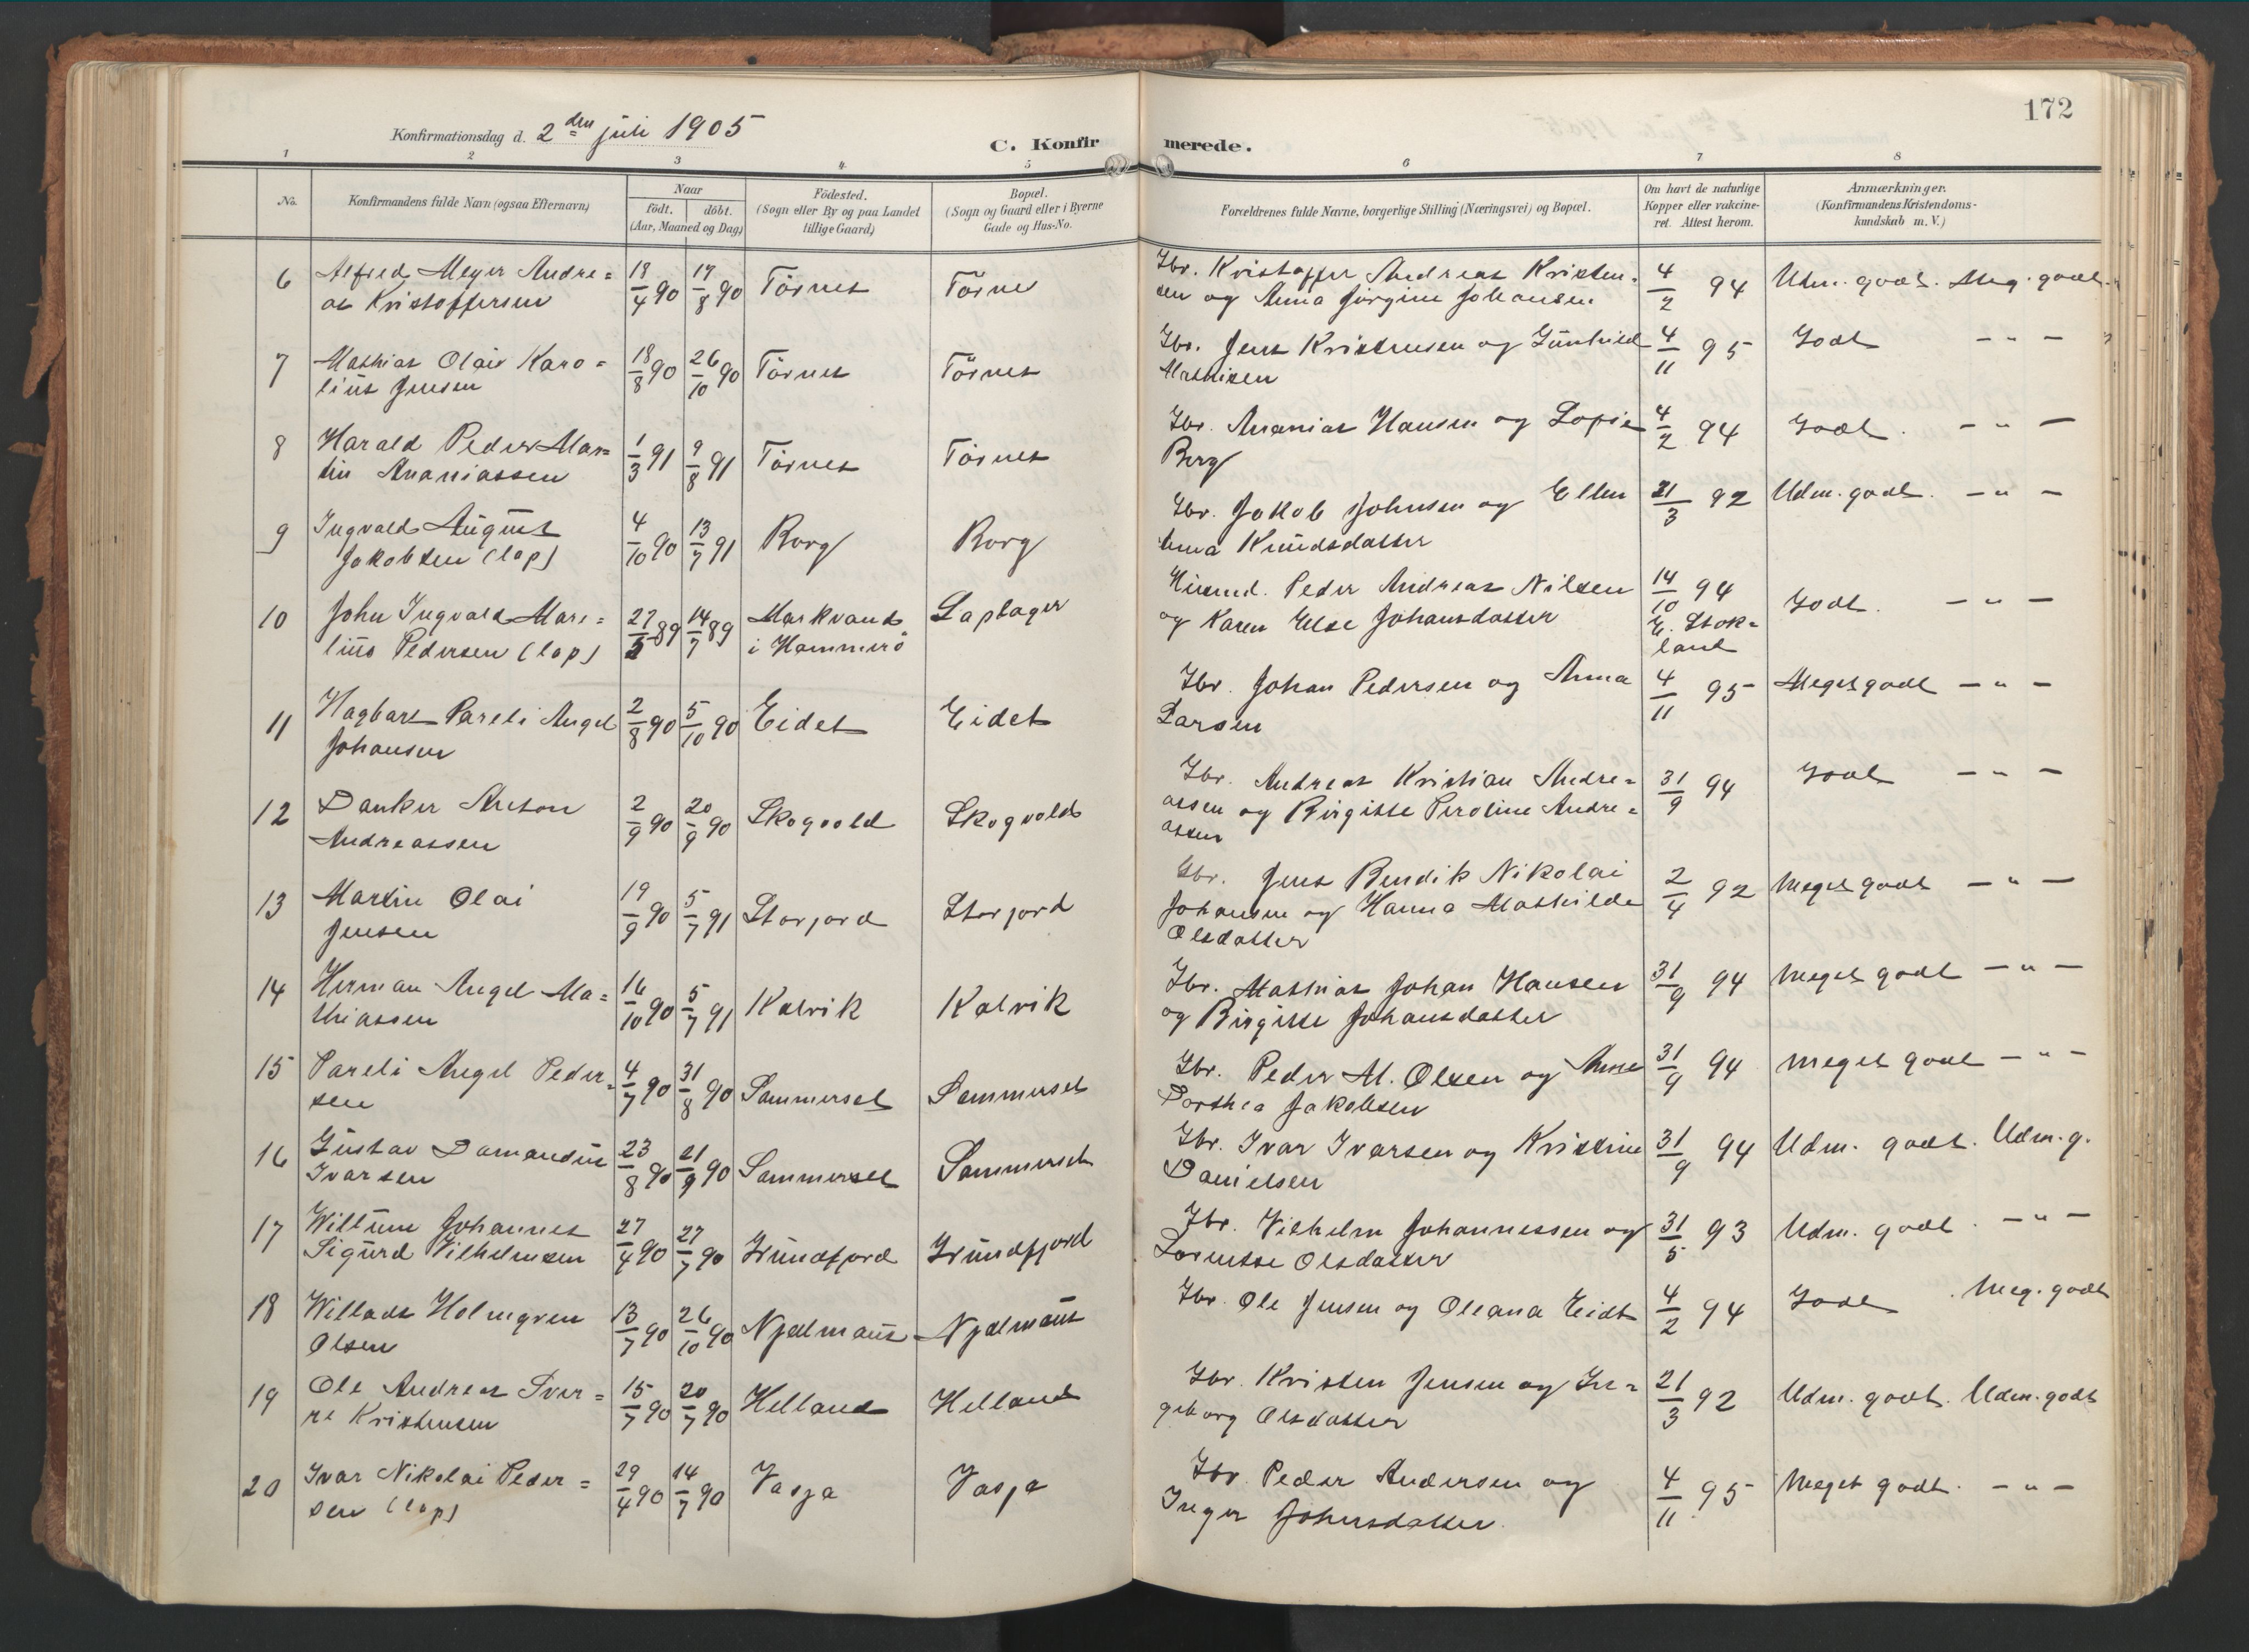 172
Konfirmationsdag d. 2den juli 1905
C. Konfirmerede.
1 2 3 4 5 6 7 8
No. Konfirmandens fulde Navn (ogsaa Efternavn) Naar födt. döbt. (Aar, Maaned og Dag) Födested. (Sogn eller By og paa Landet tillige Gaard) Bopæl. (Sogn og Gaard eller i Byerne Gade og Hus-No. Forældrenes fulde Navne, borgerlige Stilling (Næringsvei) og Bopæl. Om havt de naturlige Kopper eller vakcineret. Attest herom. Anmærkninger. (Konfirmandens Kristendomskundskab m. V.)
6 Alfred Meyer Andre= 18/4 90 17/8 90 Törnes Törne Gbr. Kristoffer Andreas Kristen- 4/2 94 Udm. godt. Meg. godt.
as Kristoffersen sen og Anna Jörgine Johansen
7 Mathias Olaiv Karo= 18/8 90 26/10 90 Törnes Törnes Gbr. Jens Kristensen og Gunhild 4/11 95 Godt — " —
lius Jensen Mathisen
8 Harald Peder Mar= 1/3 91 9/8 91 Törnes Törnes Gbr. Ananias Hansen og Sofie 4/2 94 Godt. — " —
tin Ananiassen Berg
9 Ingvald August 4/10 90 13/7 91 Borg Borg Gbr. Jakob Johnsen og Ellen 21/3 92 Udm. godt. — " —
Jakobsen (lap) Anna Knudsdatter
10 John Ingvald Mari= 27/5 89 14/7 89 Markvand Laplager Husmd. Peder Andreas Nilsen 14/10 94 Godt. — " —
lius Pedersen (lap) i Hammerö og Karen Else Johansdatter E. Stok=
land
11 Hagbart Pareli Angel 2/8 90 5/10 90 Eidet Eidet Gbr. Johan Pedersen og Anna 4/11 95 Meget godt — " —
Johansen Larsen
12 Danker Anton 2/9 90 20/9 90 Skogvold Skogvold Gbr. Andreas Kristian Andre= 31/9 94 Godt — " —
Andreassen assen og Birgitte Peroline Andre=
assen
13 Martin Olai 19/9 90 5/7 91 Storjord Storjord Gbr. Jens Bendik Nikolai 2/4 92 Meget godt — " —
Jensen Johansen og Hanna Mathilde
Olsdatter
14 Herman Angel Ma= 16/10 90 5/7 91 Kalvik Kalvik Gbr. Mathias Johan Hansen 31/9 94 Meget godt — " —
thiassen og Birgitte Johansdatter
15 Pareli Angel Peder= 4/7 90 31/8 90 Sommerset Sommerset Gbr. Peder M. Olsen og Anne 31/9 94 Meget godt — " —
sen Dorthea Jakobsen
16 Gustav Damandus 23/8 90 21/9 90 Sommerset Sommerset Gbr. Ivar Ivarsen og Kristine 31/9 94 Udm. godt. Udm. g.
Ivarsen Danielsen
17 Willum Johannes 27/4 90 27/7 90 Grundfjord Grundfjord Gbr. Vilhelm Johannessen og 31/5 93 Udm. godt. — " —
Sigurd Vilhelmsen Lorentse Olsdatter
18 Willads Holmgren 13/7 90 26/10 90 Njalmaus Njalmaus Gbr. Ole Jensen og Oleana Eidt 4/2 94 Godt. Meg. godt
Olsen
19 Ole Andreas Sver= 15/7 90 20/7 90 Helland Helland Gbr. Kristen Jensen og In= 21/3 92 Udm. godt. Udm. godt
re Kristensen geborg Olsdatter
20 Ivar Nikolai Peder= 29/4 90 14/7 90 Vasja Vasja Gbr Peder Andersen og 4/11 95 Meget godt. — " —
sen (lap) Inger Johnsdatter